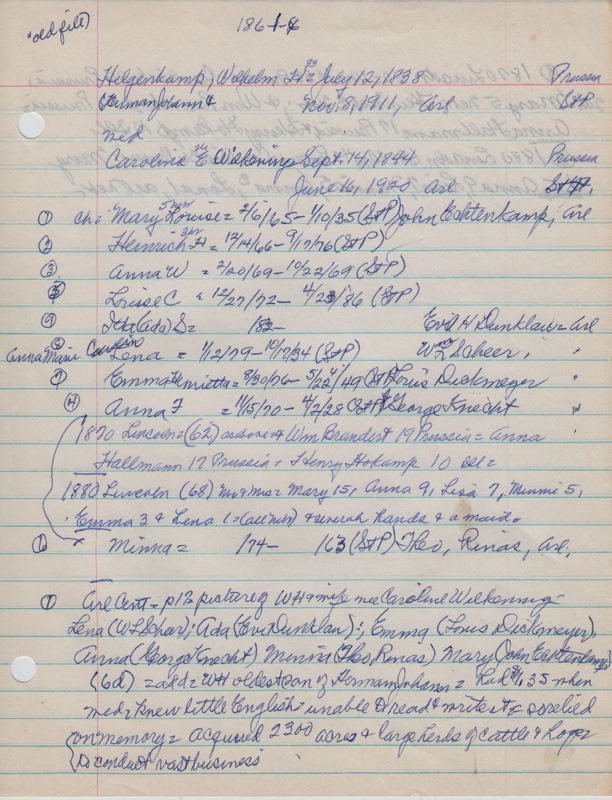 "old file)
1861-8
Hilgenkamp, Wilhelm H = July 12, 1838 Prussia
(HermanJohann & Nov. 8, 1911, Arl StP
med
Caroline E Wilkening Sept. 14, 1844 Prussia
June 16, 1920 Arl StP,
① ch: Mary Louise = 2/6/65 - 1/10/35 (StP) John Echtenkamp, Arl
② Heinrich H = 12/14/66 - 9/17/76 (StP)
③ Anna W = 2/20/69 - 10/22/69 (StP)
⑤ Louise C = 12/27/72 - 4/23/86 (StP)
⑨ Ida (Ada) S = 182- Evil H Dunklau = Arl
⑧ Anna Marie Carolin Lena = 1/12/79 - 10/17/34 (StP) WL Scheer, "
⑦ Emma Henrietta = 8/30/76 - 5/22/49 (StP) Louis Diekmeyer "
④ Anna F = 11/15/70 - 4/2/28 (StP) George Knecht "
1870 Lincoln = (62) as above & Wm Brandert 19 Prussia = Anna
Hallmann 17 Prussia = Henry Hokamp 10 Ill =
1880 Lincoln (68) Mr & Mrs = Mary 15, Anna 9, Lisa 7, Minni 5,
Emma 3 & Lena 1 = (all Neb) & several hands & a maid.
⑥ Minna = 174 - 163 (StP) Theo, Rinas, Arl,
① Arl Cent - p12 picture of WH & wife nee Caroline Wilkening
Lena (WL Scheer); Ada (Evil Dunklau); Emma (Louis Diekmeyer),
Anna (George Knecht) Minnie (Theo Rinas) Mary (John Echtenkamp)
(6d) = add = WH oldest son of Herman Johann = had $1.35 when
med = knew little English = unable to read & write it = so relied
on memory = acquired 2300 acres & large herds of cattle & hogs
to conduct vast business